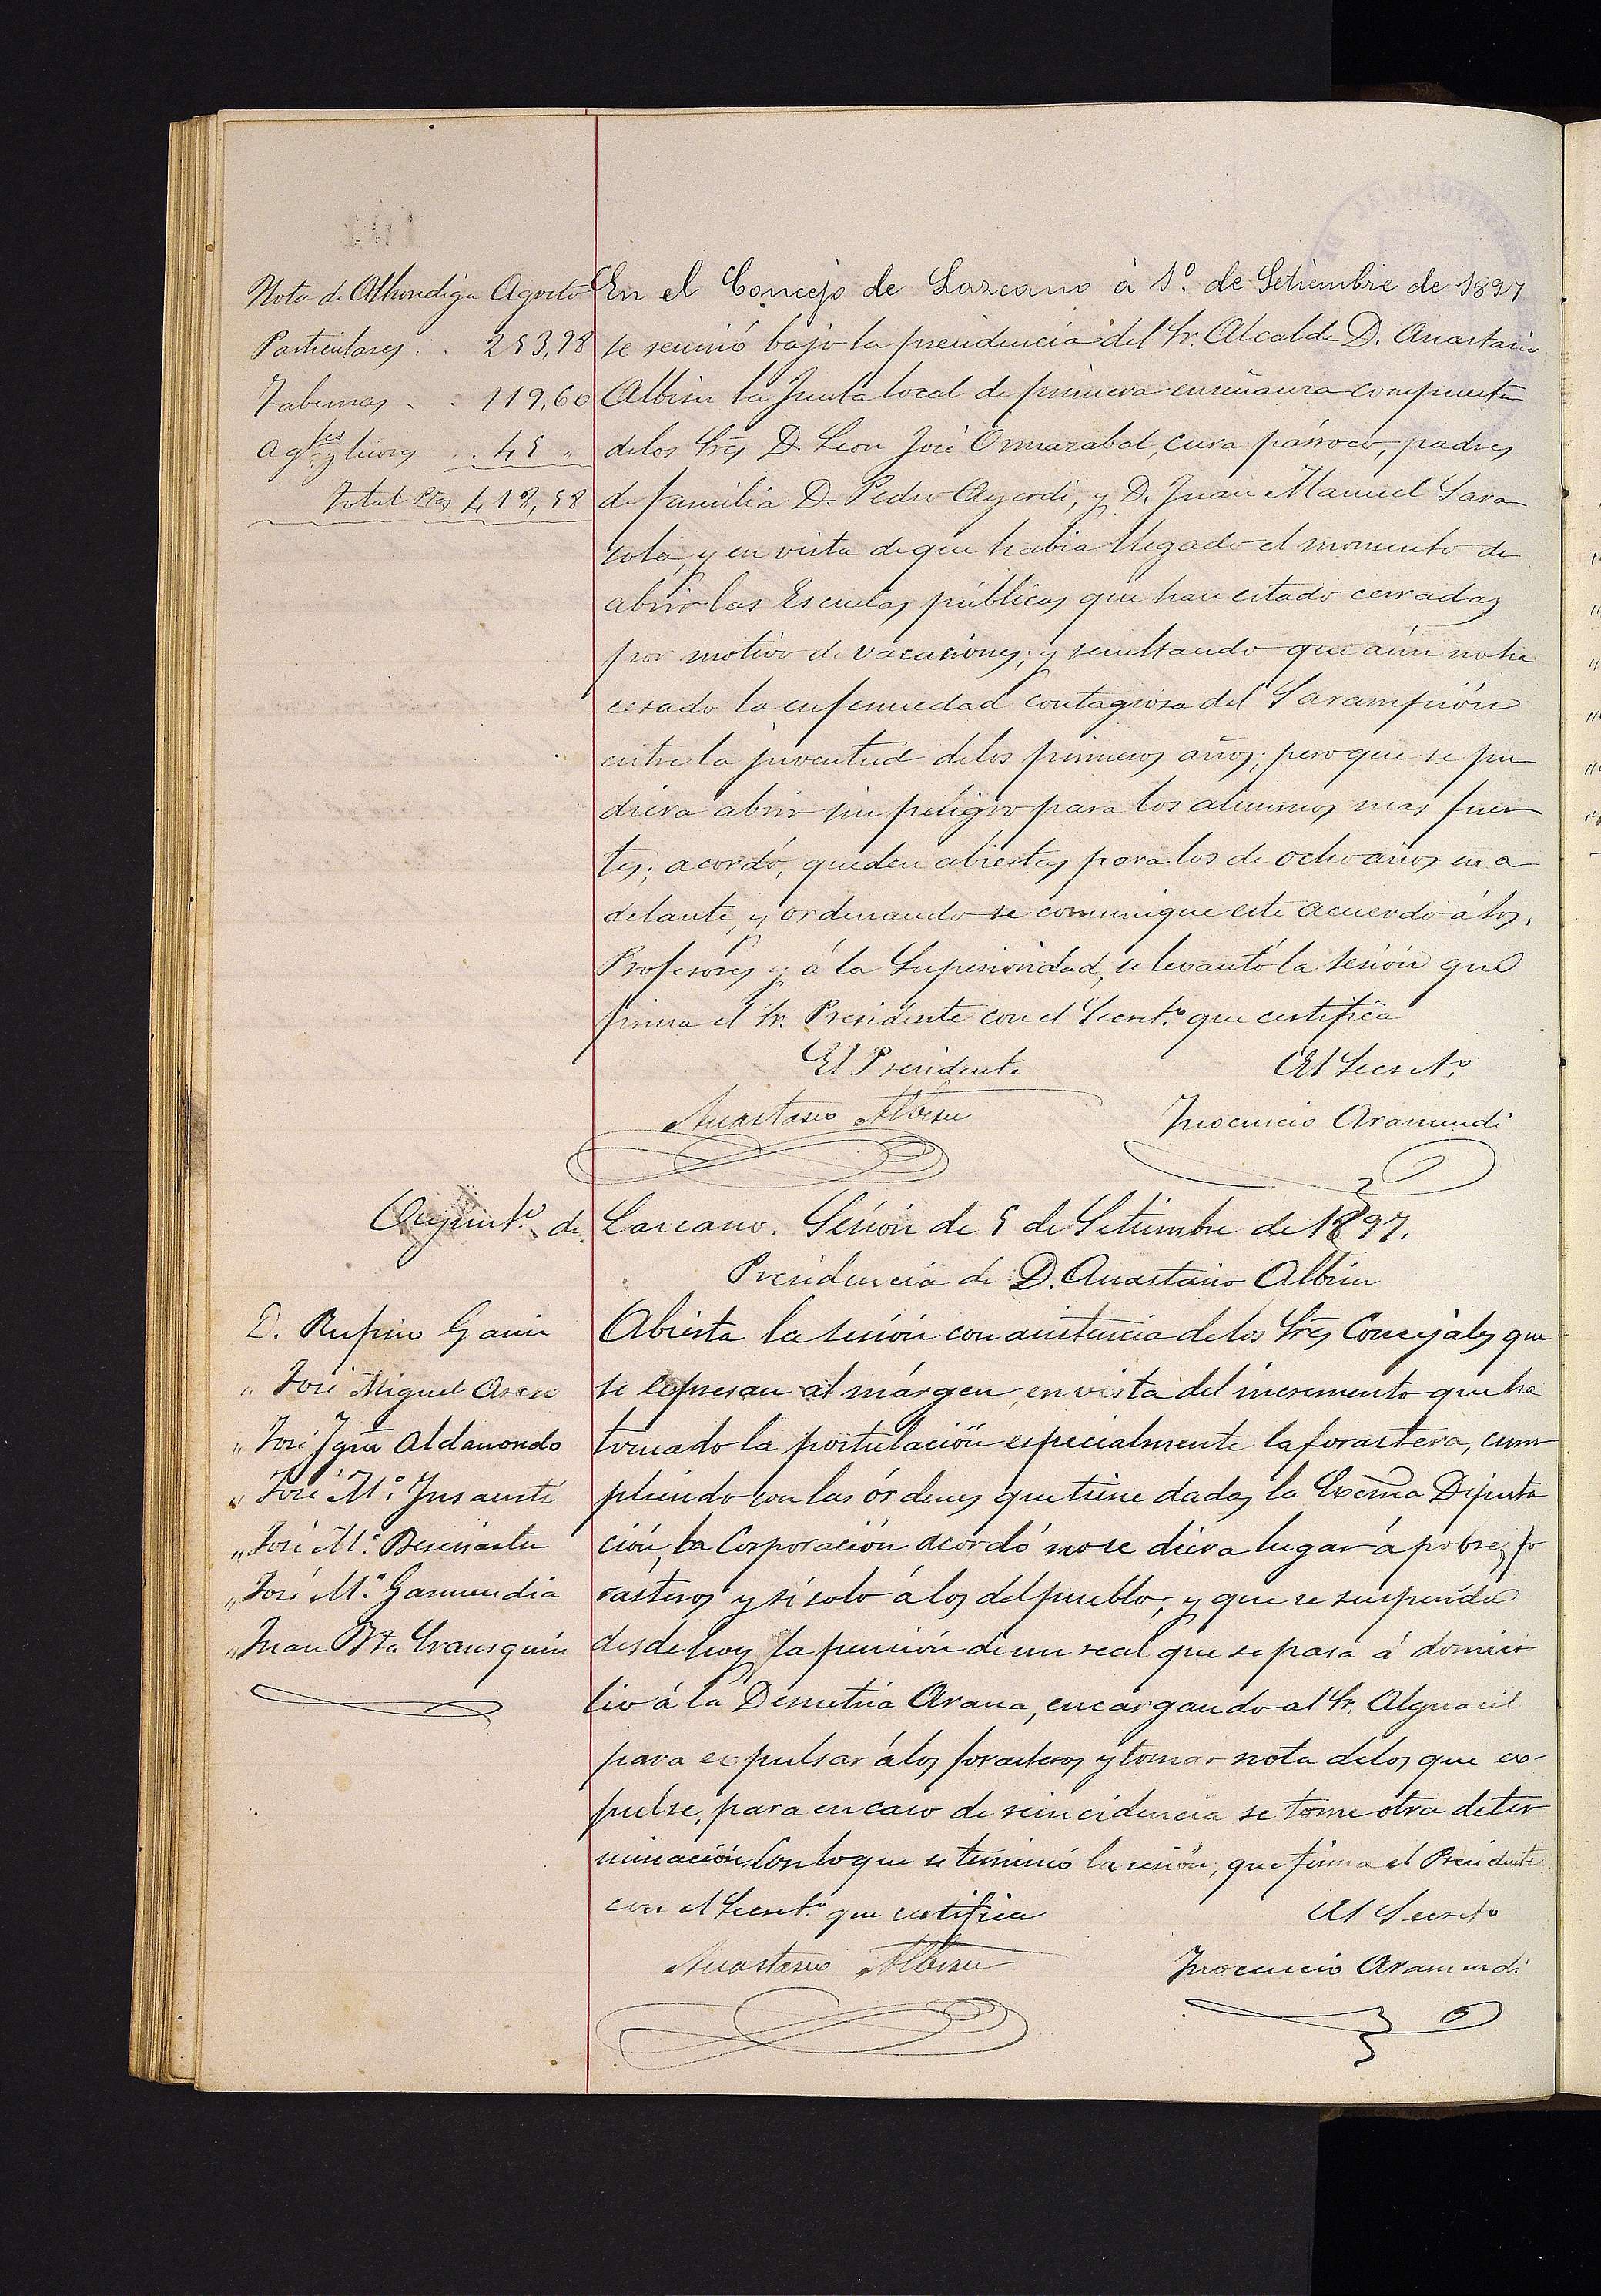 Nota de Alhondiga Agosto
Particulares . . 253,98
Tabernas . . 119,60
Agtes y licores . . 45 "
Total Ptas 418,58
En el Concejo de Lazcano á 1º. de Setiembre de 1897
se reunió bajo la presidencia del Sr. Alcalde D. Anastasio
Albisu la Junta local de primera enseñanza compuesta
de los Sres D. Leon José Ormazabal, cura párroco, padres
de familia D. Pedro Ayerdi, y D. Juan Manuel Sara
sola, y en vista de que habia llegado el momento de
abrir las Escuelas públicas que han estado cerradas
por motivo de vacaciones; y resultando que aún no ha
cesado la enfermedad contagiosa del Sarampión
entre la juventud de los primeros años; pero que se pu
diera abrir sin peligro para los alumnos mas fuer
tes; acordó, queden abiertas para los de ocho años en a
delante, y ordenando se comunique este acuerdo á los
Profesores y á la Superioridad, se levantó la sesión que
firma el Sr. Presidente con el Secretº que certifica
El Presidente El Secretº
Anastasio Albisu Inocencio Aramendi
Ayuntº de Lazcano. Sesión de 5 de Setiembre de 1897.
Presidencia de D. Anastasio Albisu
D. Rufino Gain
" José Miguel
" José Igno Aldanondo
" José Mª. Insausti
" José Mª. Berasiartu
" José Mª. Garmendia
" Juan Bta Irausquin
Abierta la sesión con asistencia de los Sres Concejales que
se expresan al márgen, en vista del incremento que ha
tomado la postulación especialmente la forastera, cum
pliendo con las órdenes que tiene dadas la Excma Diputa
ción, la Corporación acordó no se diera lugar á pobres fo
rasteros y sí solo á los del pueblo, y que se suspenda
desde hoy la pensión de un real que se pasa á domici
lio á la Demetria Arana, encargando al Sr. Alguacil
para expulsar á los forasteros y tomar nota de los que ex-
pulse, para en caso de reincidencia se tome otra deter
minación. Con lo que se terminó la sesión, que firma el Presidente
con el Secretº que certifica El Secretº
Anastasio Albisu Inocencio Aramendi